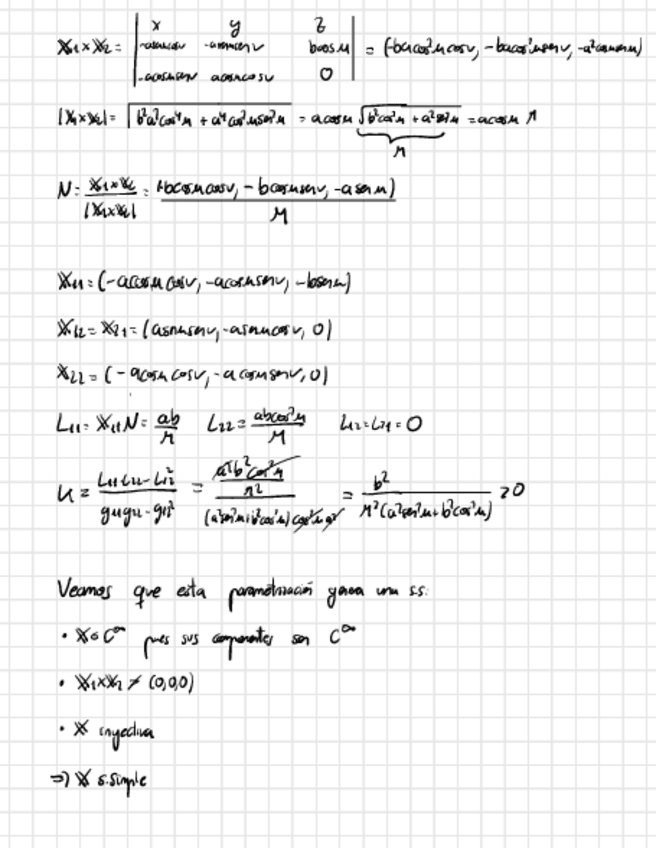 𝕏₁×𝕏₂ = | x y z ; -asenu cosv -asenu senv bcosu ; -acosu senv acosu cosv 0 | = (-ba cos²u cosv, -ba cos²u senv, -a² cosu senu)
|𝕏₁×𝕏₂| = √(b²a²cos⁴u + a⁴cos²u sen²u) = a cosu √(b²cos²u + a²sen²u) = a cosu M
M
N = 𝕏₁×𝕏₂ / |𝕏₁×𝕏₂| = (-bcosu cosv, -bcosu senv, -a senu) / M
𝕏₁₁ = (-acosu cosv, -acosu senv, -bsenu)
𝕏₁₂ = 𝕏₂₁ = (asenu senv, -asenu cosv, 0)
𝕏₂₂ = (-acosu cosv, -acosu senv, 0)
L₁₁ = 𝕏₁₁N = ab/M L₂₂ = abcos²u/M L₁₂ = L₂₁ = 0
K = (L₁₁L₂₂ - L₁₂²) / (g₁₁g₂₂ - g₁₂²) = (a²b²cos²u / M²) / ((a²sen²u + b²cos²u) cos²u a²) = b² / (M²(a²sen²u + b²cos²u)) > 0
Veamos que esta parametrización genera una s.s:
• 𝕏 ∈ C^∞ pues sus componentes son C^∞
• 𝕏₁×𝕏₂ ≠ (0,0,0)
• 𝕏 inyectiva
⇒) 𝕏 s.simple